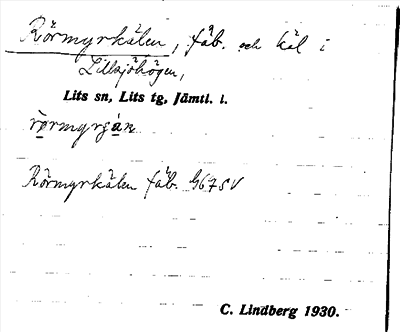 Rörmyrkälen, fäb. och käl i
Lillsjöhögen,
Lits sn, Lits tg, Jämtl. l.
Rörmyrkälen fäb. 667SV
C. Lindberg 1930.